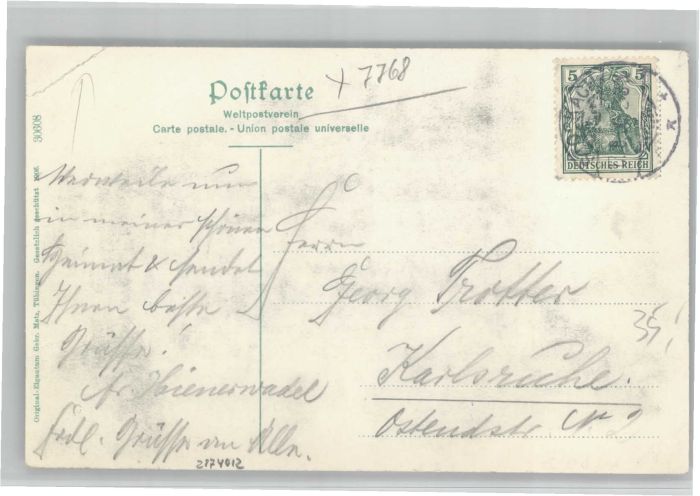 Postkarte
Weltpostverein
Carte postale. - Union postale universelle
+ 7768
5 5
DEUTSCHES REICH
30608
Original-Eigentum Gebr. Metz, Tübingen. Gesetzlich geschützt
Verweile nun
in meiner schönen
Heimat & sendet
Ihnen beste
Grüsse!
Wienerwadel
frdl. Grüsse an Alle.
Herrn
Georg Trotter
Karlsruhe.
Ostendstr. N. 2
35!
2174012